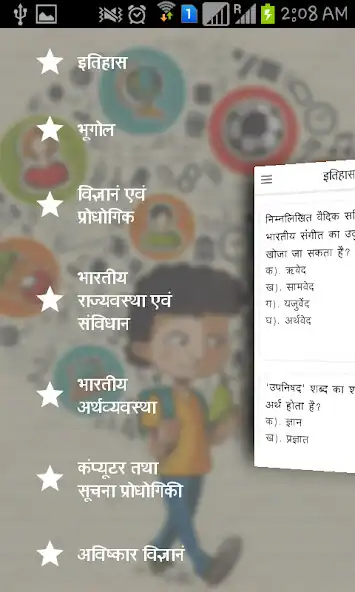 2:08 AM
इतिहास
भूगोल
विज्ञानं एवं
प्रोधोगिक
भारतीय
राज्यवस्था एवं
संविधान
भारतीय
अर्थव्यवस्था
कंप्यूटर तथा
सूचना प्रोधोगिकी
अविष्कार विज्ञानं
इतिहास
निम्नलिखित वैदिक
भारतीय संगीत का
खोजा जा सकता है?
क). ऋवेद
ख). सामवेद
ग). यजुर्वेद
घ). अर्थवेद
'उपनिषद' शब्द का
अर्थ होता है?
क). ज्ञान
ख). प्रज्ञात